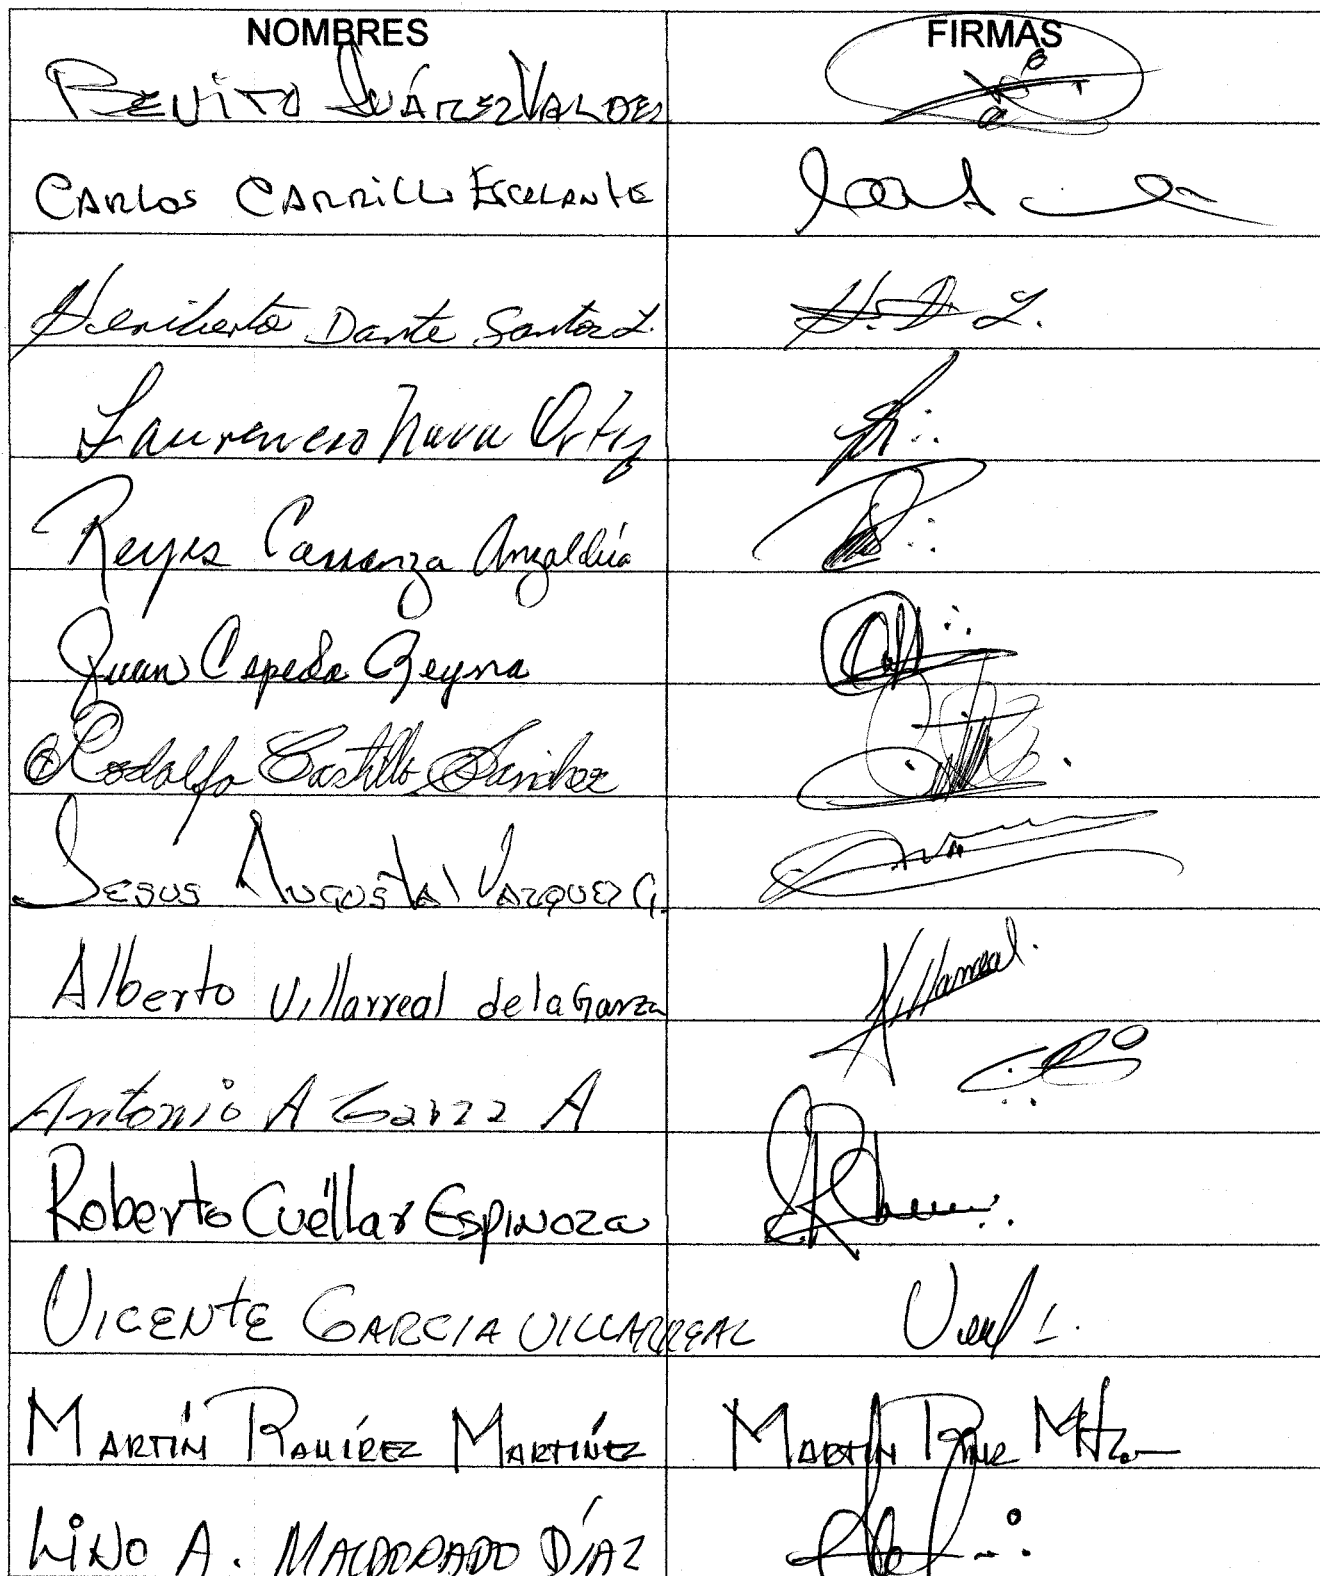 NOMBRES FIRMAS
BENITO SUÁREZ VALDES
CARLOS CARRILLO ESCALANTE
Heriberto Dante Santos L.
Laurencio Nava Ortiz
Reyes Carranza Anzaldúa
Juan Cepeda Reyna
Rodolfo Castillo Sánchez
JESUS AUGUSTAL VAZQUEZ G.
Alberto Villarreal de la Garza Villarreal
Antonio A Garza A
Roberto Cuéllar ESPINOZA
VICENTE GARCIA VILLARREAL
MARTÍN RAMÍREZ MARTÍNEZ MARTÍN
LINO A. MALDONADO DÍAZ